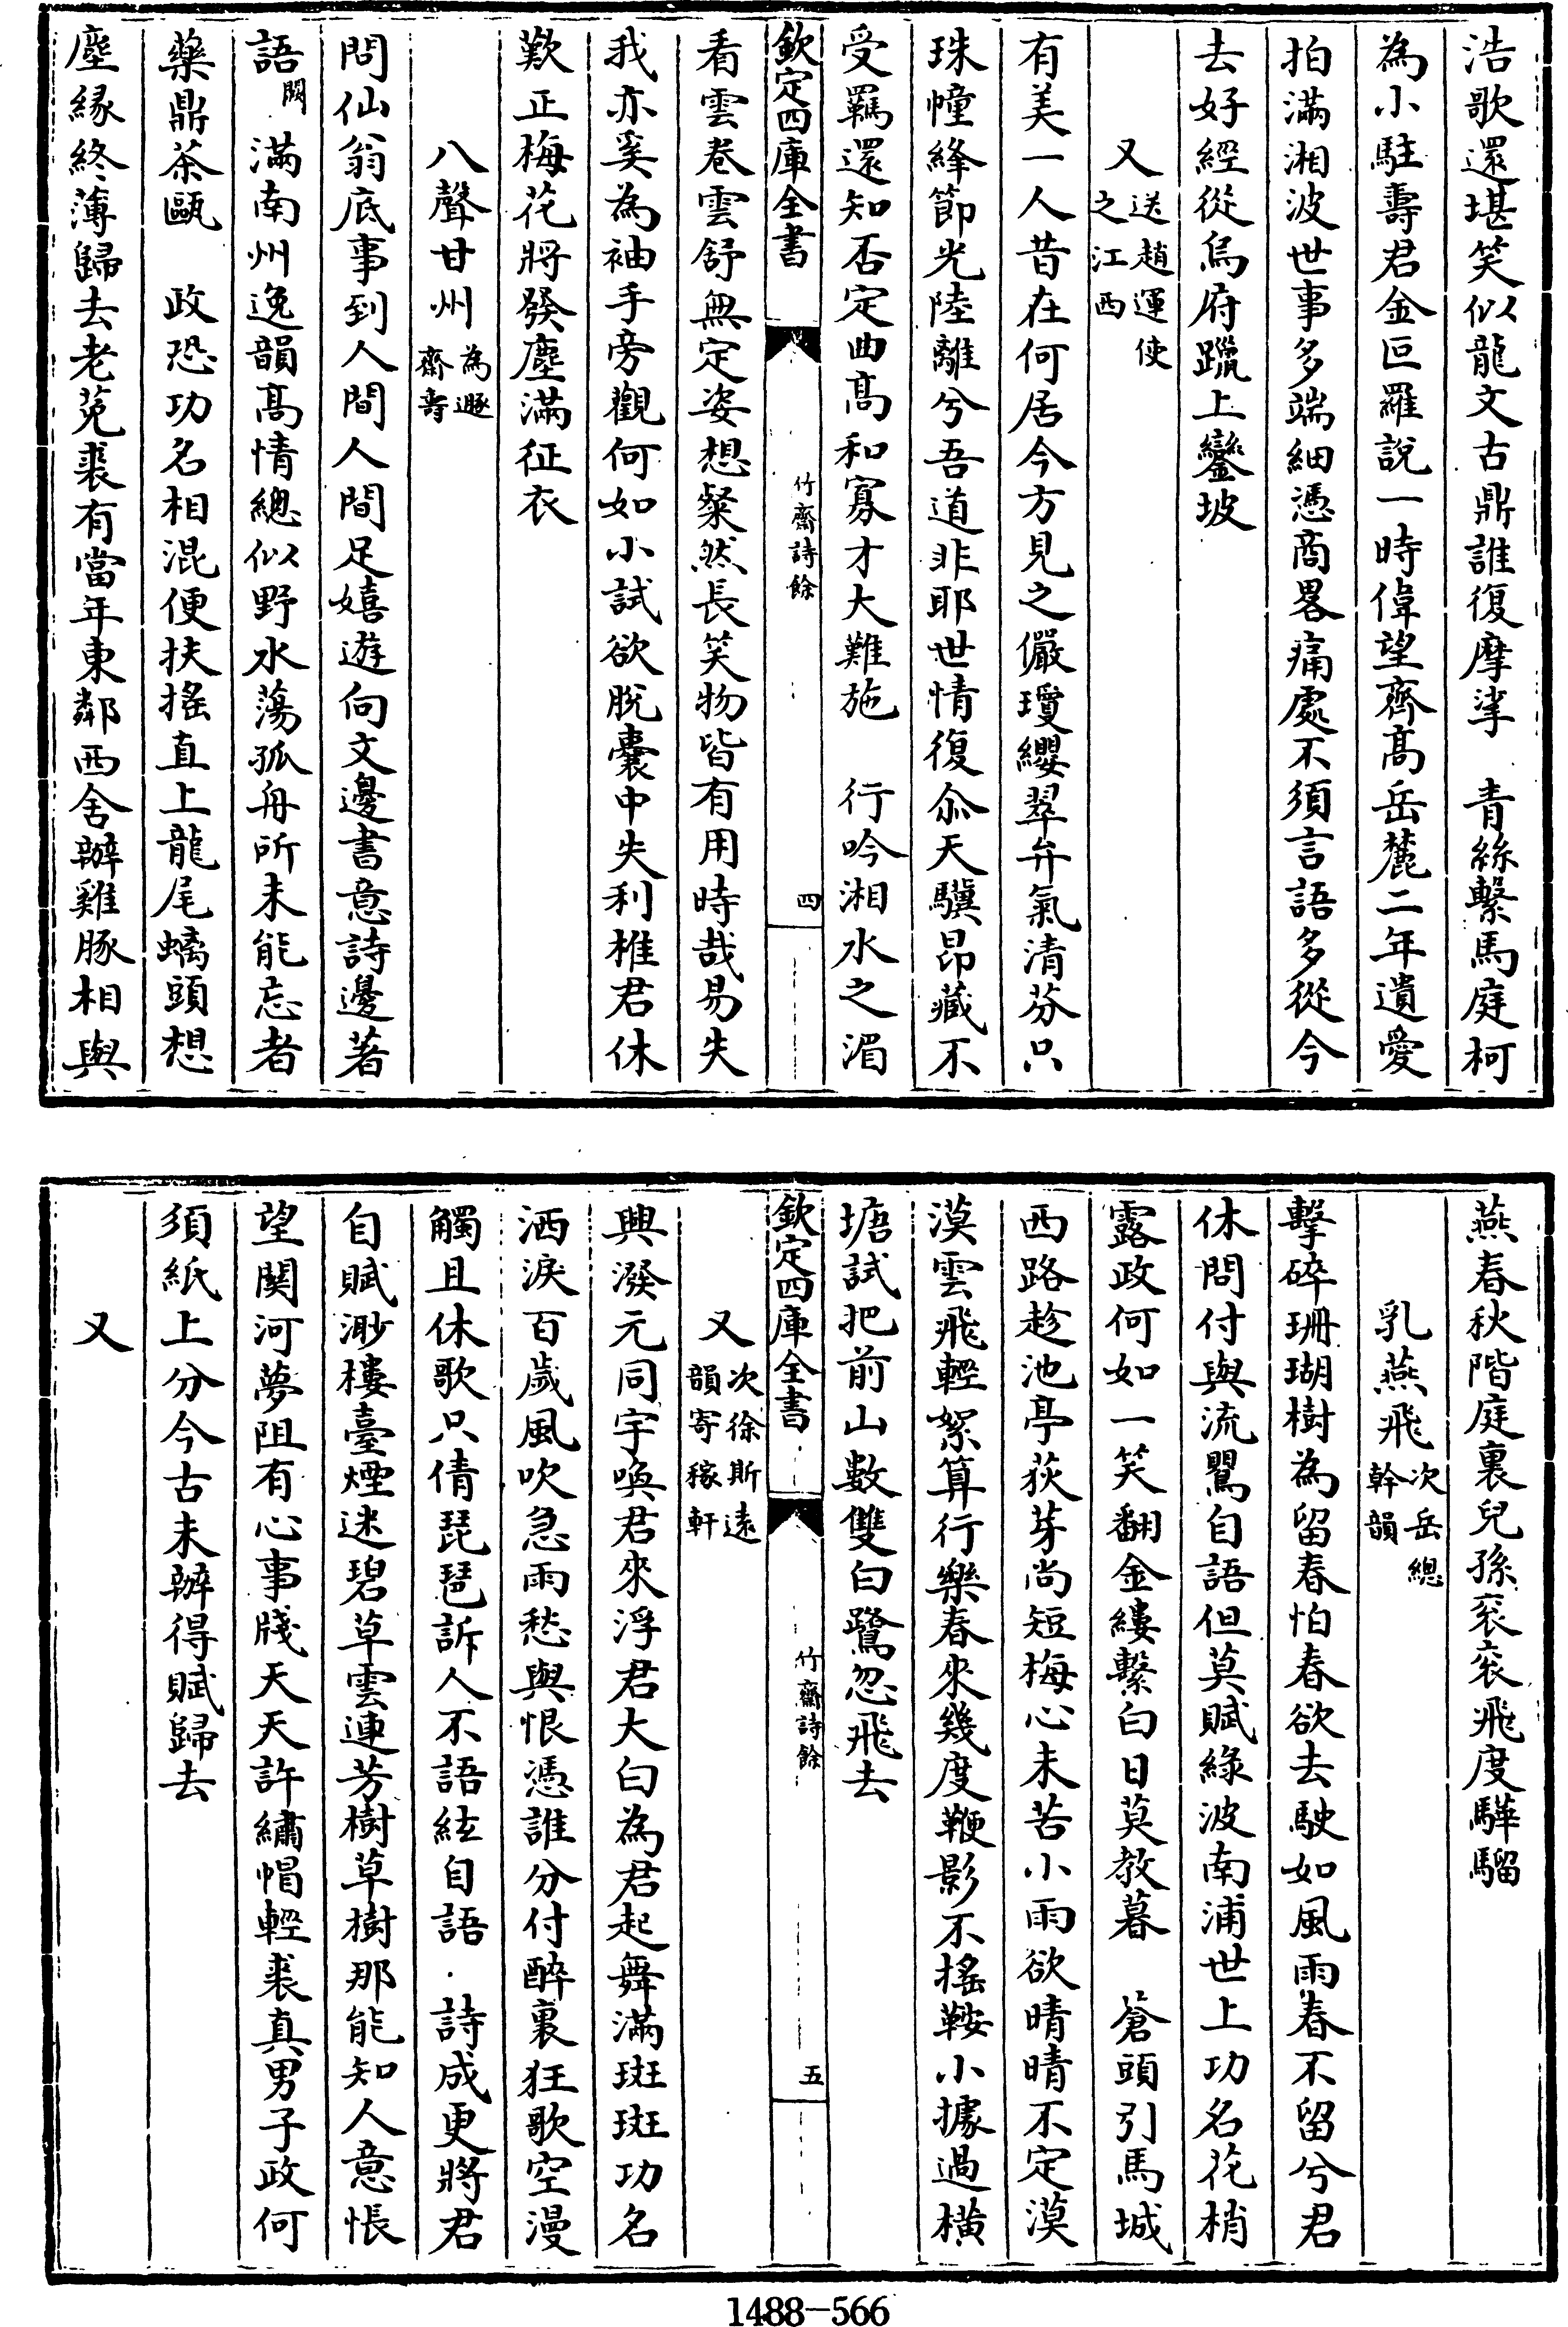 浩歌還堪笑似龍文古鼎誰復摩挲　青絲繫馬庭柯
為小駐壽君金叵羅說一時偉望齊髙岳麓二年遺愛
拍滿湘波世事多端細憑商畧痛處不須言語多從今
去好經從烏府躐上鑾坡
又送趙運使之江西
有美一人昔在何居今方見之儼瓊纓翠弁氣清芬只
珠幢絳節光陸離兮吾道非耶世情復尒天驥昂藏不
受羈還知否定曲髙和寡才大難施　行吟湘水之湄
欽定四庫全書
竹齋詩餘
四
看雲卷雲舒無定姿想粲然長笑物皆有用時哉易失
我亦奚為袖手旁觀何如小試欲脫囊中失利椎君休
歎正梅花將發塵滿征衣
八聲甘州為遯齋壽
問仙翁底事到人間人間足嬉遊向文邊書意詩邊著
語闕滿南州逸韻髙情總似野水蕩孤舟所未能忘者
藥鼎茶甌　政恐功名相混便扶搖直上龍尾螭頭想
塵緣終薄歸去老菟裘有當年東鄰西舍辦雞豚相與
燕春秋階庭裏兒孫衮衮飛度驊騮
乳燕飛次岳總幹韻
擊碎珊瑚樹為留春怕春欲去駛如風雨春不留兮君
休問付與流鶯自語但莫賦綠波南浦世上功名花梢
露政何如一笑翻金縷繫白日莫教暮　蒼頭引馬城
西路趁池亭荻芽尚短梅心未苦小雨欲晴晴不定漠
漠雲飛輕絮算行樂春來幾度鞭影不搖鞍小據過橫
塘試把前山數雙白鷺忽飛去
欽定四庫全書
竹齋詩餘
五
又次徐斯遠韻寄稼軒
興潑元同宇喚君來浮君大白為君起舞滿斑斑功名
洒淚百歲風吹急雨愁與恨憑誰分付醉裏狂歌空漫
觸且休歌只倩琵琶訴人不語絃自語　詩成更將君
自賦渺樓臺煙迷碧草雲連芳樹草樹那能知人意悵
望關河夢阻有心事牋天天許繡帽輕裘真男子政何
須紙上分今古未辦得賦歸去
又
1488-566